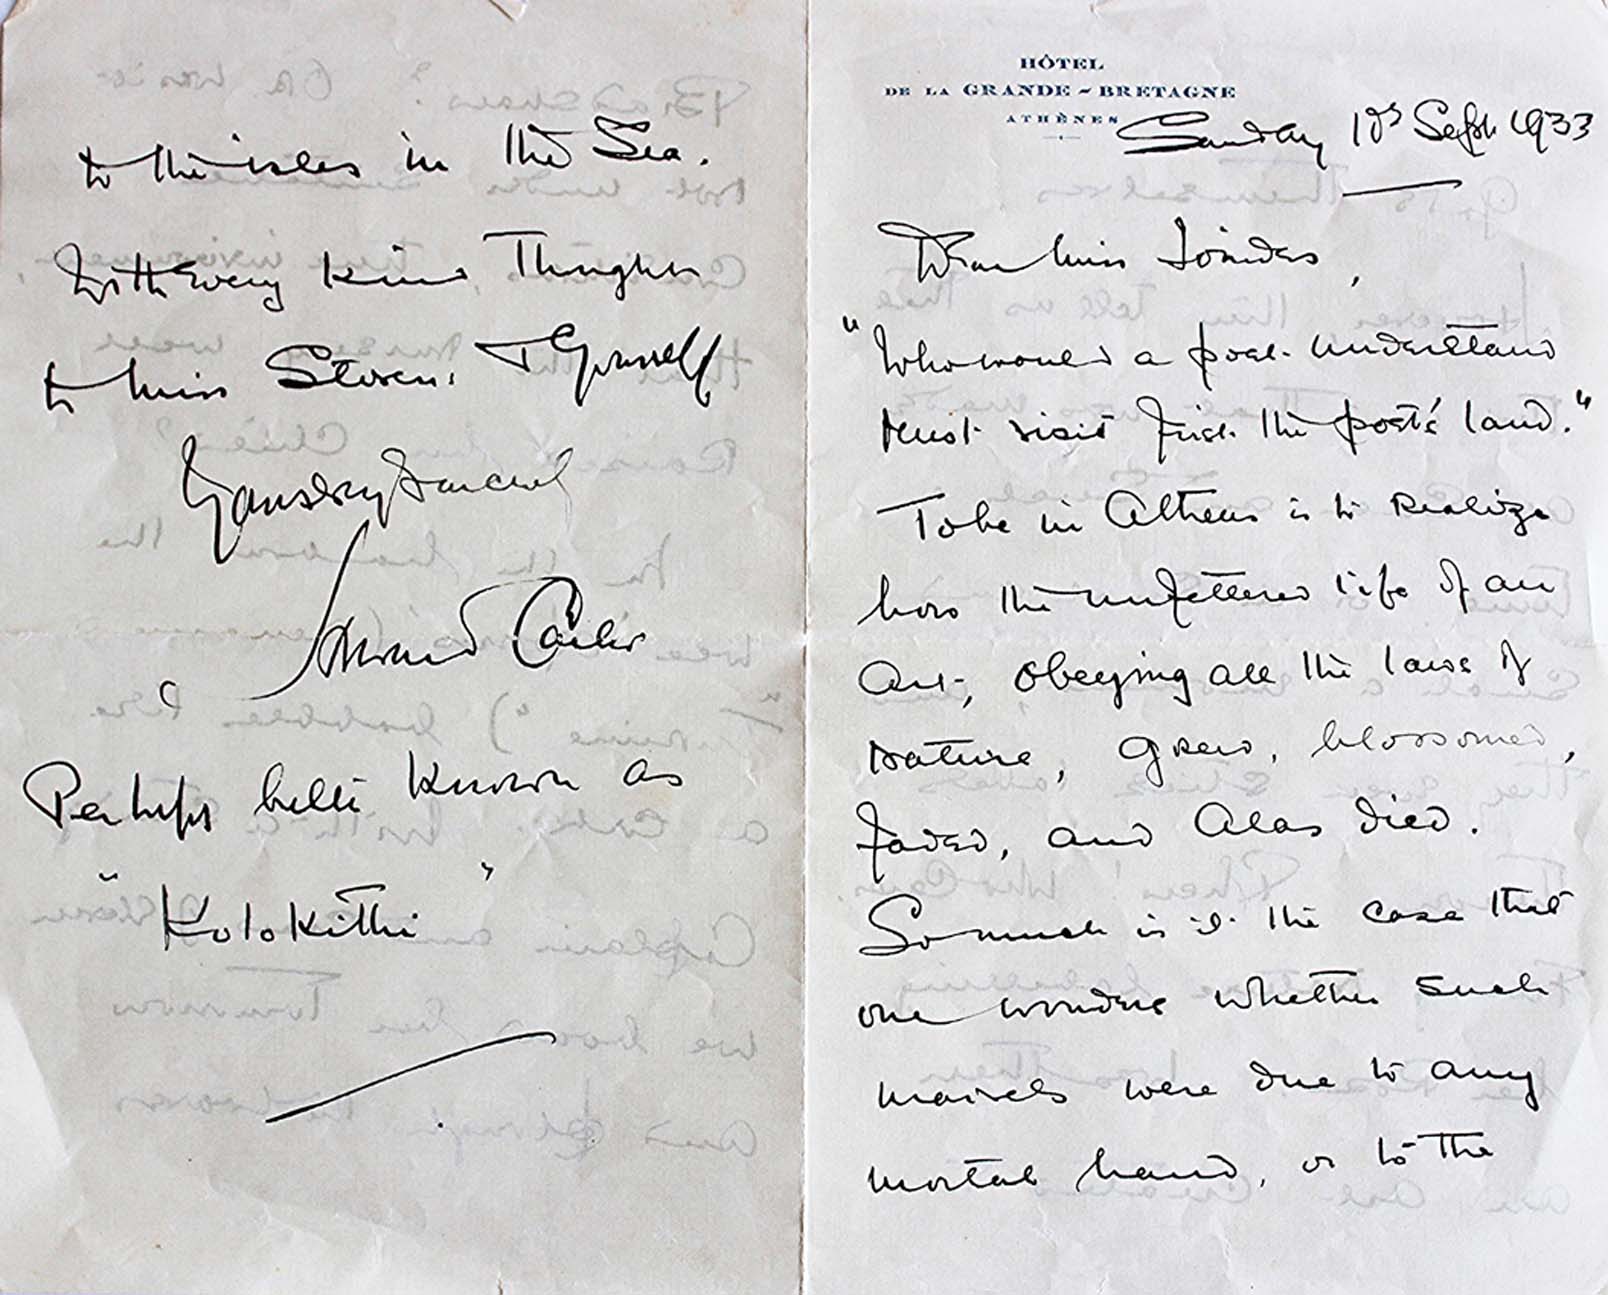 HÔTEL
DE LA GRANDE-BRETAGNE
ATHÈNES
Sunday 10th Sept 1933
Dear Miss
"Who would a poet understand
Must visit first the poet's land."
To be in Athens is to realize
how the unfettered life of an
Art, obeying all the laws of
nature, grew, blossomed,
faded, and Alas died.
So much is it the case that
one wonders whether such
marvels were due to any
mortal hand, or to the
to the isles in the Sea.
With every kind Thought
to Miss & Yourself
Yours very sincerely
Howard Carter
Perhaps better known as
"Kolokithi"